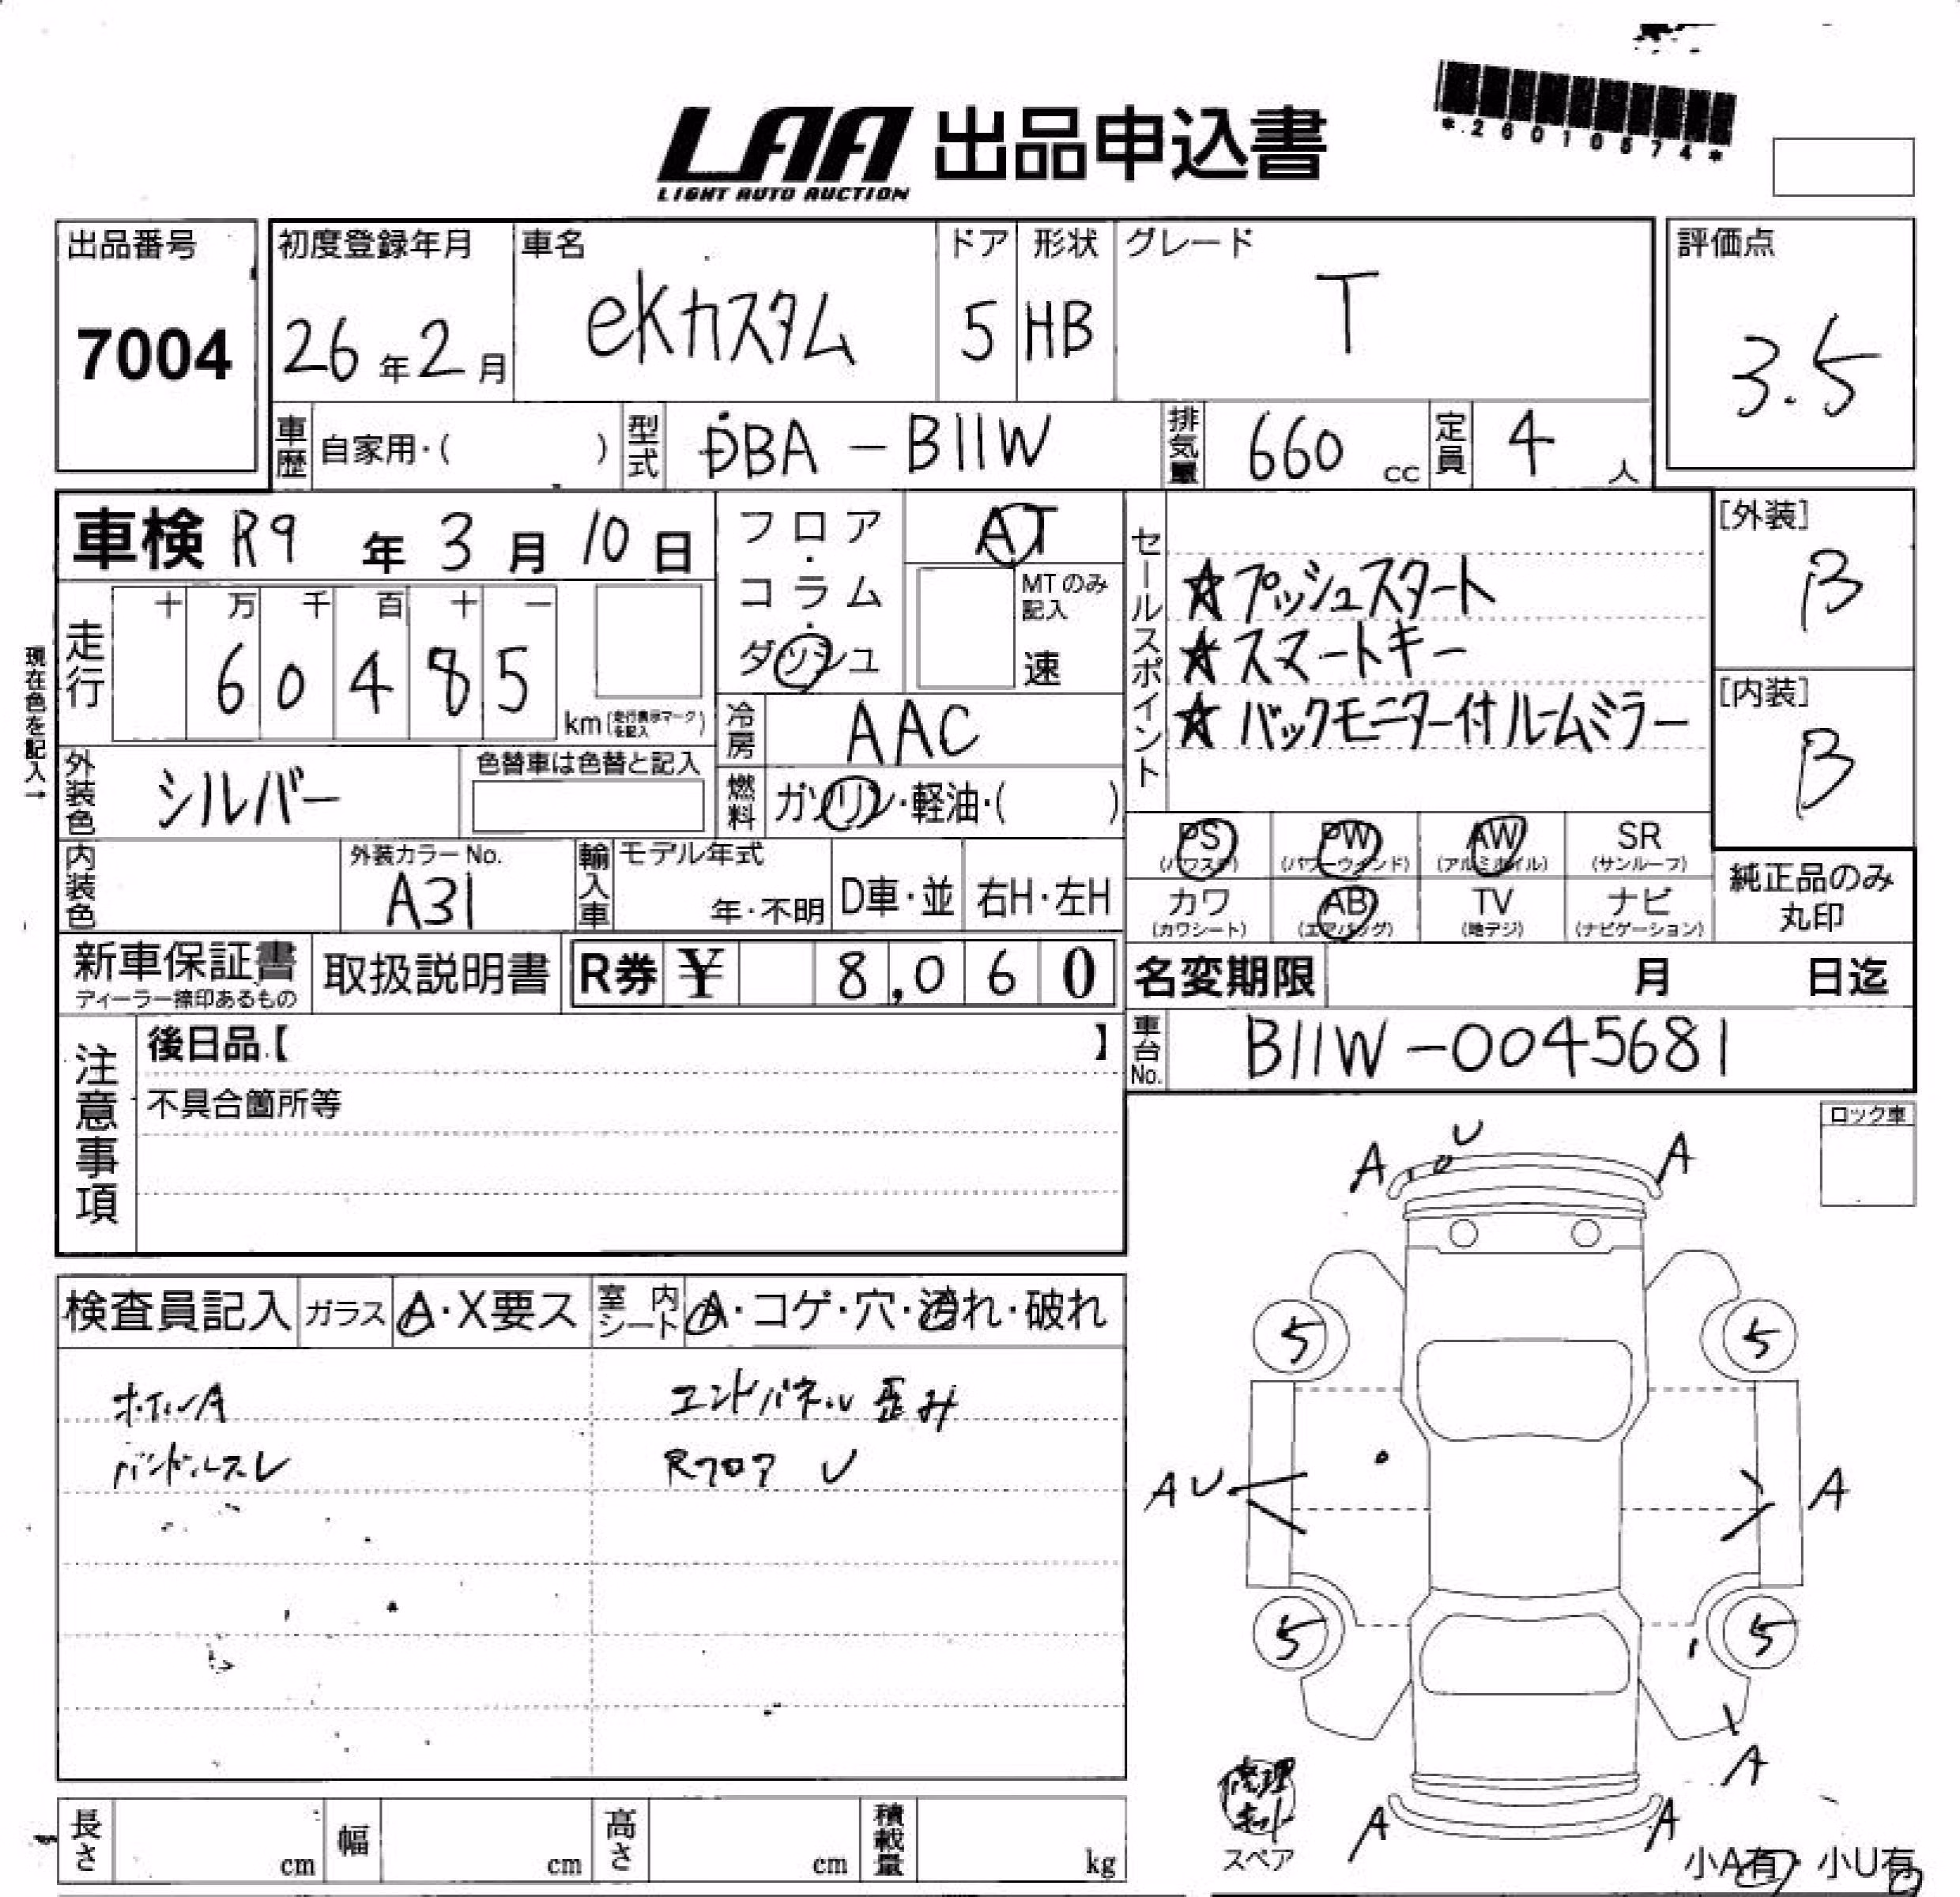 *26010574*
LAA 出品申込書
LIGHT AUTO AUCTION
出品番号
7004
初度登録年月
26年2月
車名
eKカスタム
ドア
5
形状
HB
グレード
T
評価点
3.5
車歴 自家用・( )
型式 DBA-B11W
排気量 660 cc
定員 4 人
車検 R9年3月10日
フロア・コラム・ダッシュ
AT
MTのみ記入
速
セールスポイント
☆プッシュスタート
☆スマートキー
☆バックモニター付ルームミラー
[外装]
B
[内装]
B
現在色を記入→
走行
十 万 千 百 十 一
6 0 4 8 5
km(走行表示マークを記入)
冷房 AAC
外装色 シルバー
色替車は色替と記入
燃料 ガソリン・軽油・( )
PS (パワステ)
PW (パワーウィンド)
AW (アルミホイル)
SR (サンルーフ)
内装色
外装カラーNo.
A31
輸入車
モデル年式
年・不明
D車・並
右H・左H
カワ (カワシート)
AB (エアバッグ)
TV (地デジ)
ナビ (ナビゲーション)
純正品のみ
丸印
新車保証書
ディーラー締印あるもの
取扱説明書
R券 ¥ 8,060
名変期限 月 日迄
注意事項
後日品【 】
不具合箇所等
車台No. B11W-0045681
ロック車
U
A A
検査員記入
ガラス A・X要ス
室内シート A・コゲ・穴・汚れ・破れ
5 5
ホイルA
エンドパネル 歪み
ハンドルスレ
Rフロア U
AU A
5 5
A
修理キット
スペア
A A
小A有・小U有
長さ cm
幅 cm
高さ cm
積載量 kg